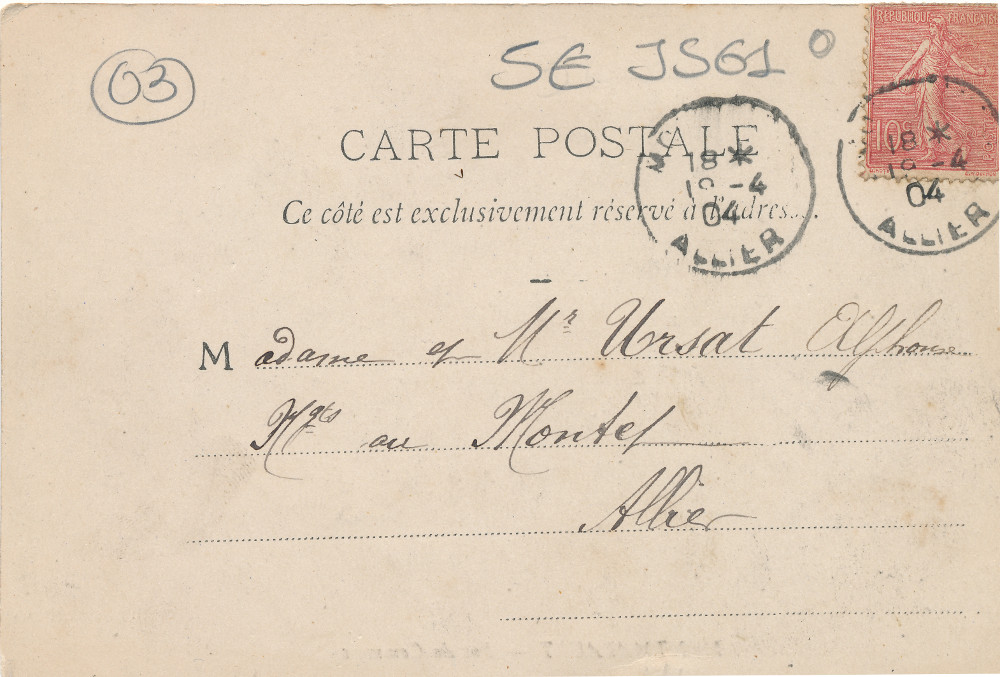 03
SE JS61 0
RÉPUBLIQUE FRANÇAISE
10c
CARTE POSTALE
Ce côté est exclusivement réservé à l'adres...
18 *
-4
04
ALLIER
18 *
-4
04
ALLIER
Madame et Mr Ursat Alphonse
Ngts au Montet
Allier